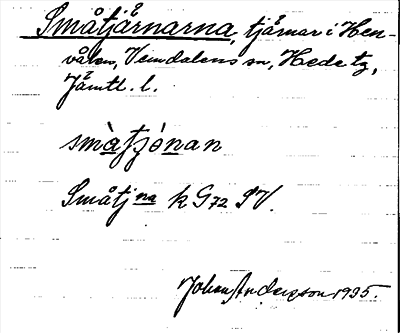 Småtjårnarna, tjårnar i Hen-
vålen, Vemdalens sn, Hede tg,
Jämtl. l.
småtjo̱nan
Småtjna k G72 SV.
Johan Andersson 1935.